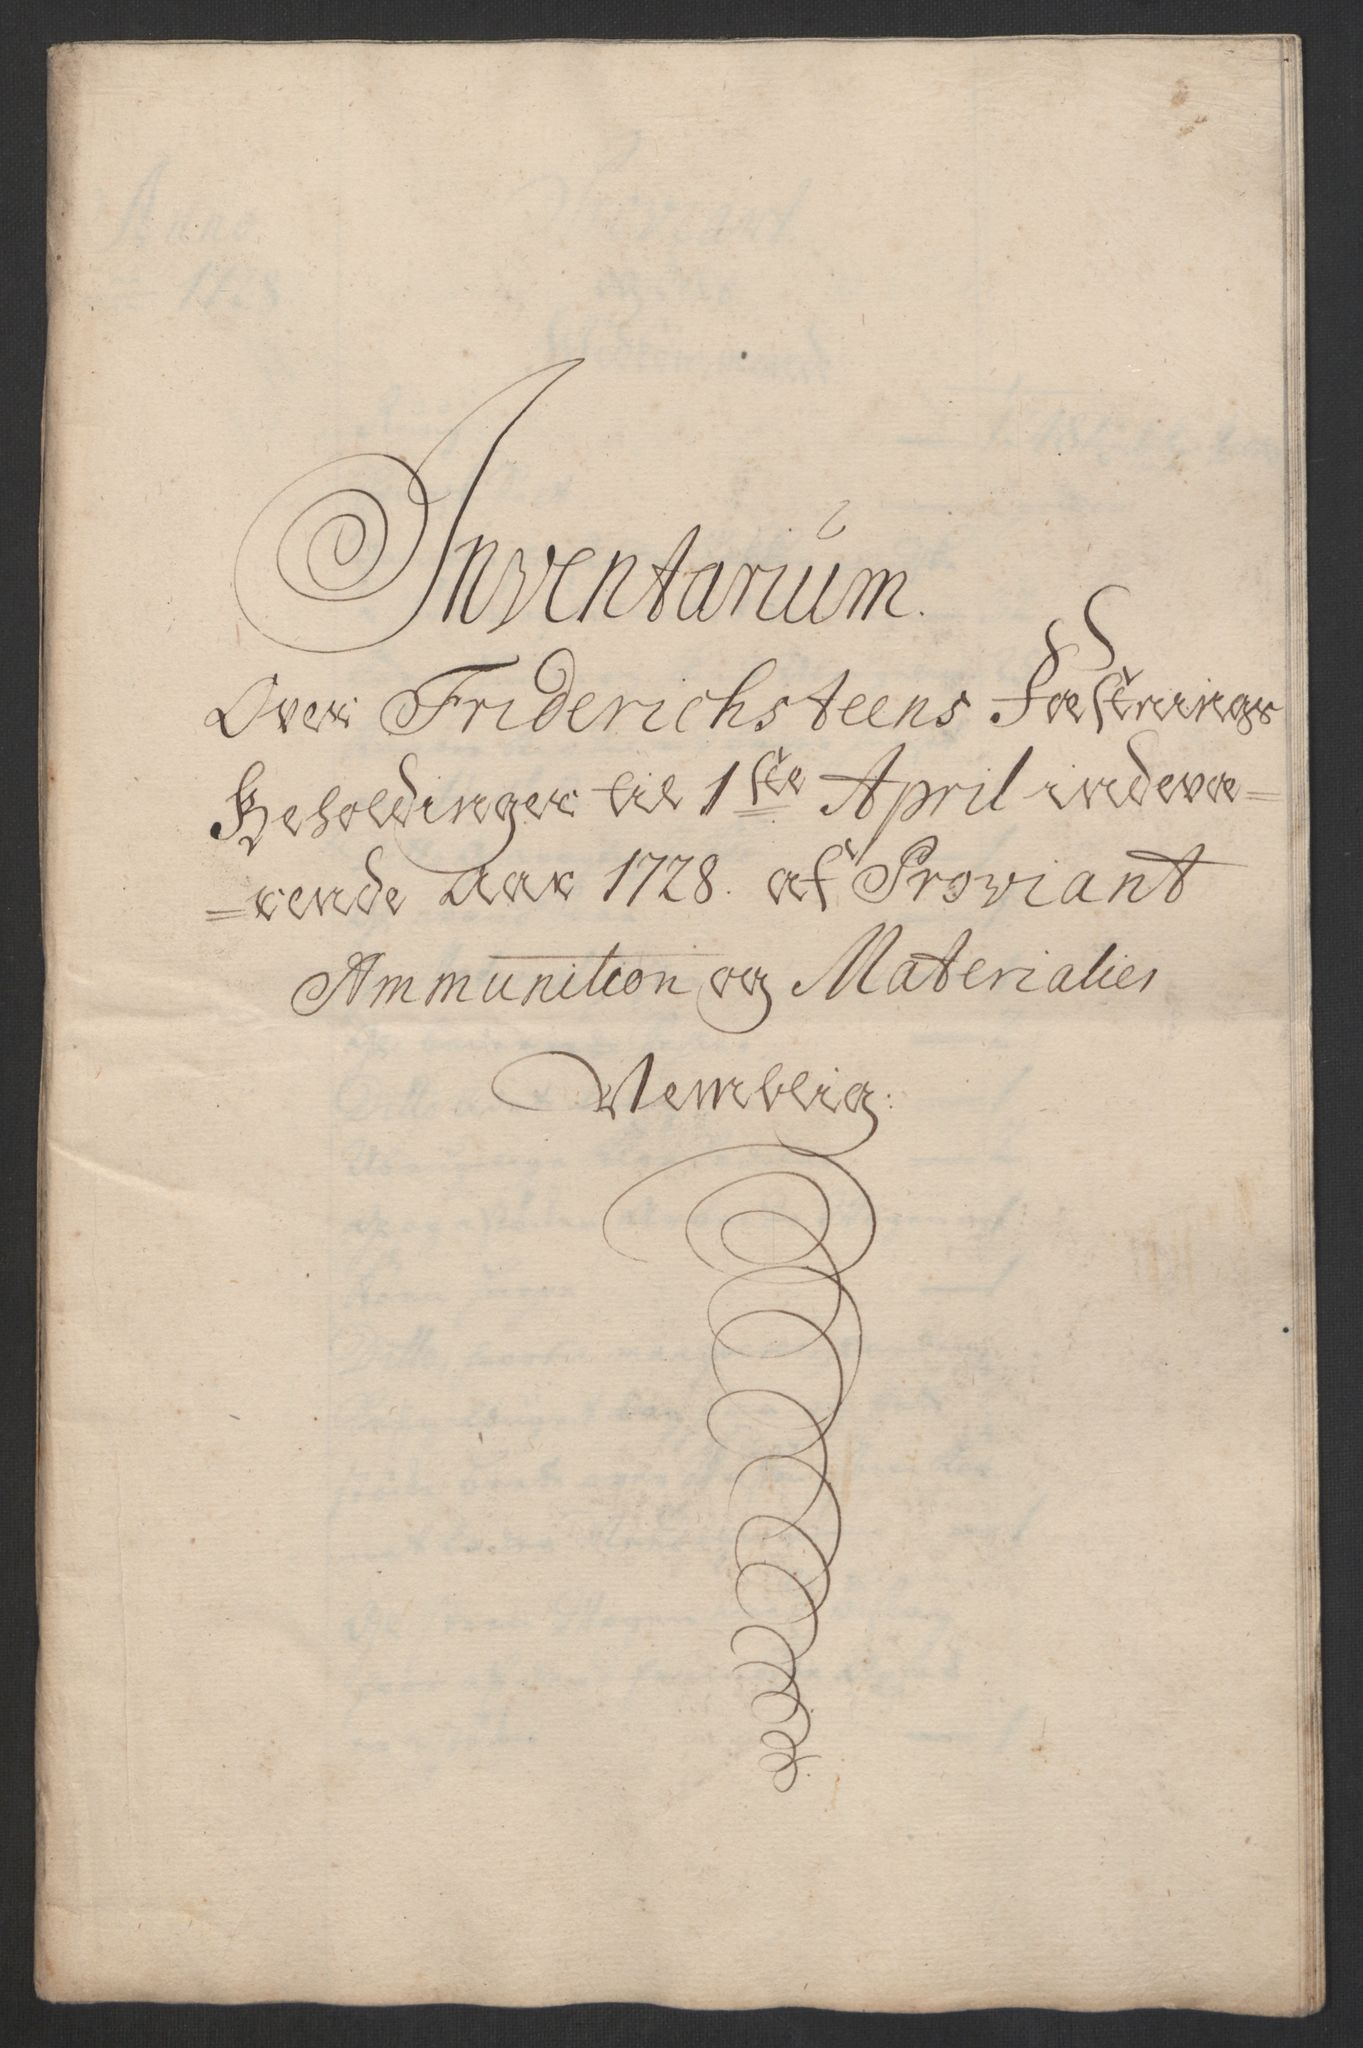 Inventarium.
Over Friderichsteens Fæstnings
Beholdinger til 1ste April indevæ=
=rende Aar 1728. af Proviant
Ammunition og Materialier
Nemblig: